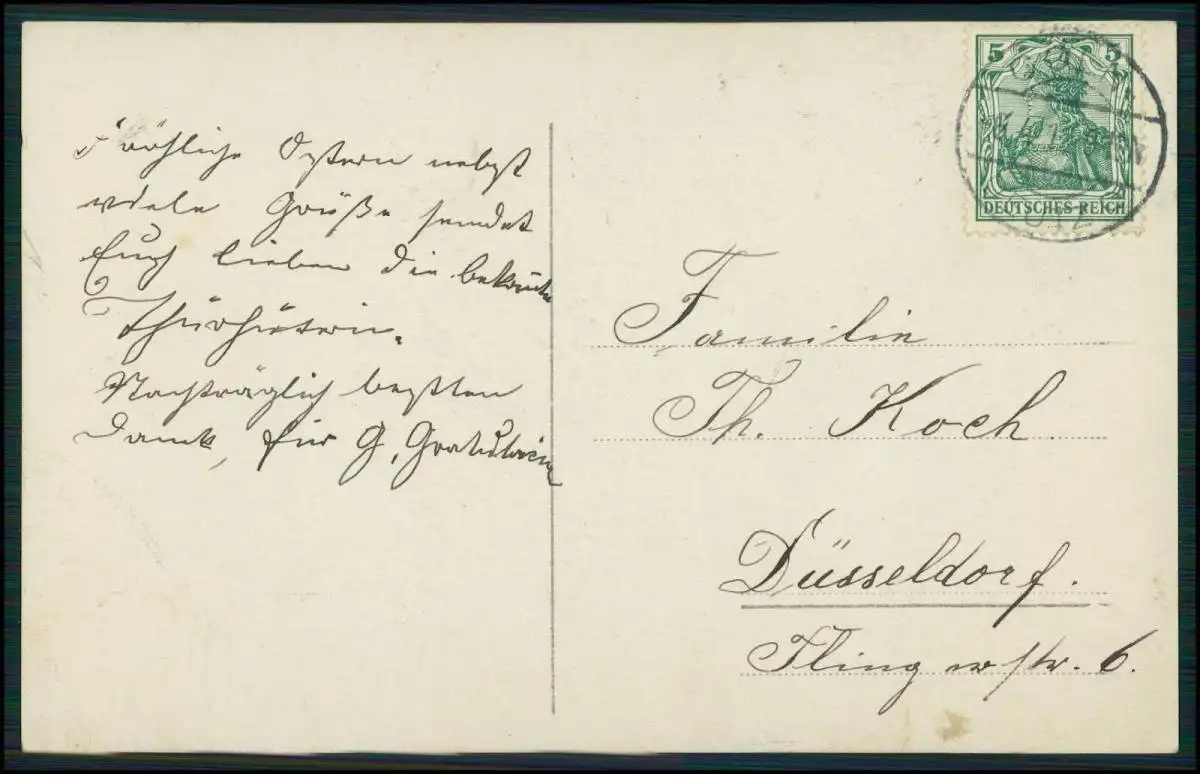 Fröhliche Ostern nebst
viele Grüße sendet
Euch lieben die bekannte
Thürhüterin.
Nachträglich besten
Dank, für G. Gratulation
5 5
DEUTSCHES REICH
Familie
Th. Koch
Düsseldorf.
Flingerstr. 6.